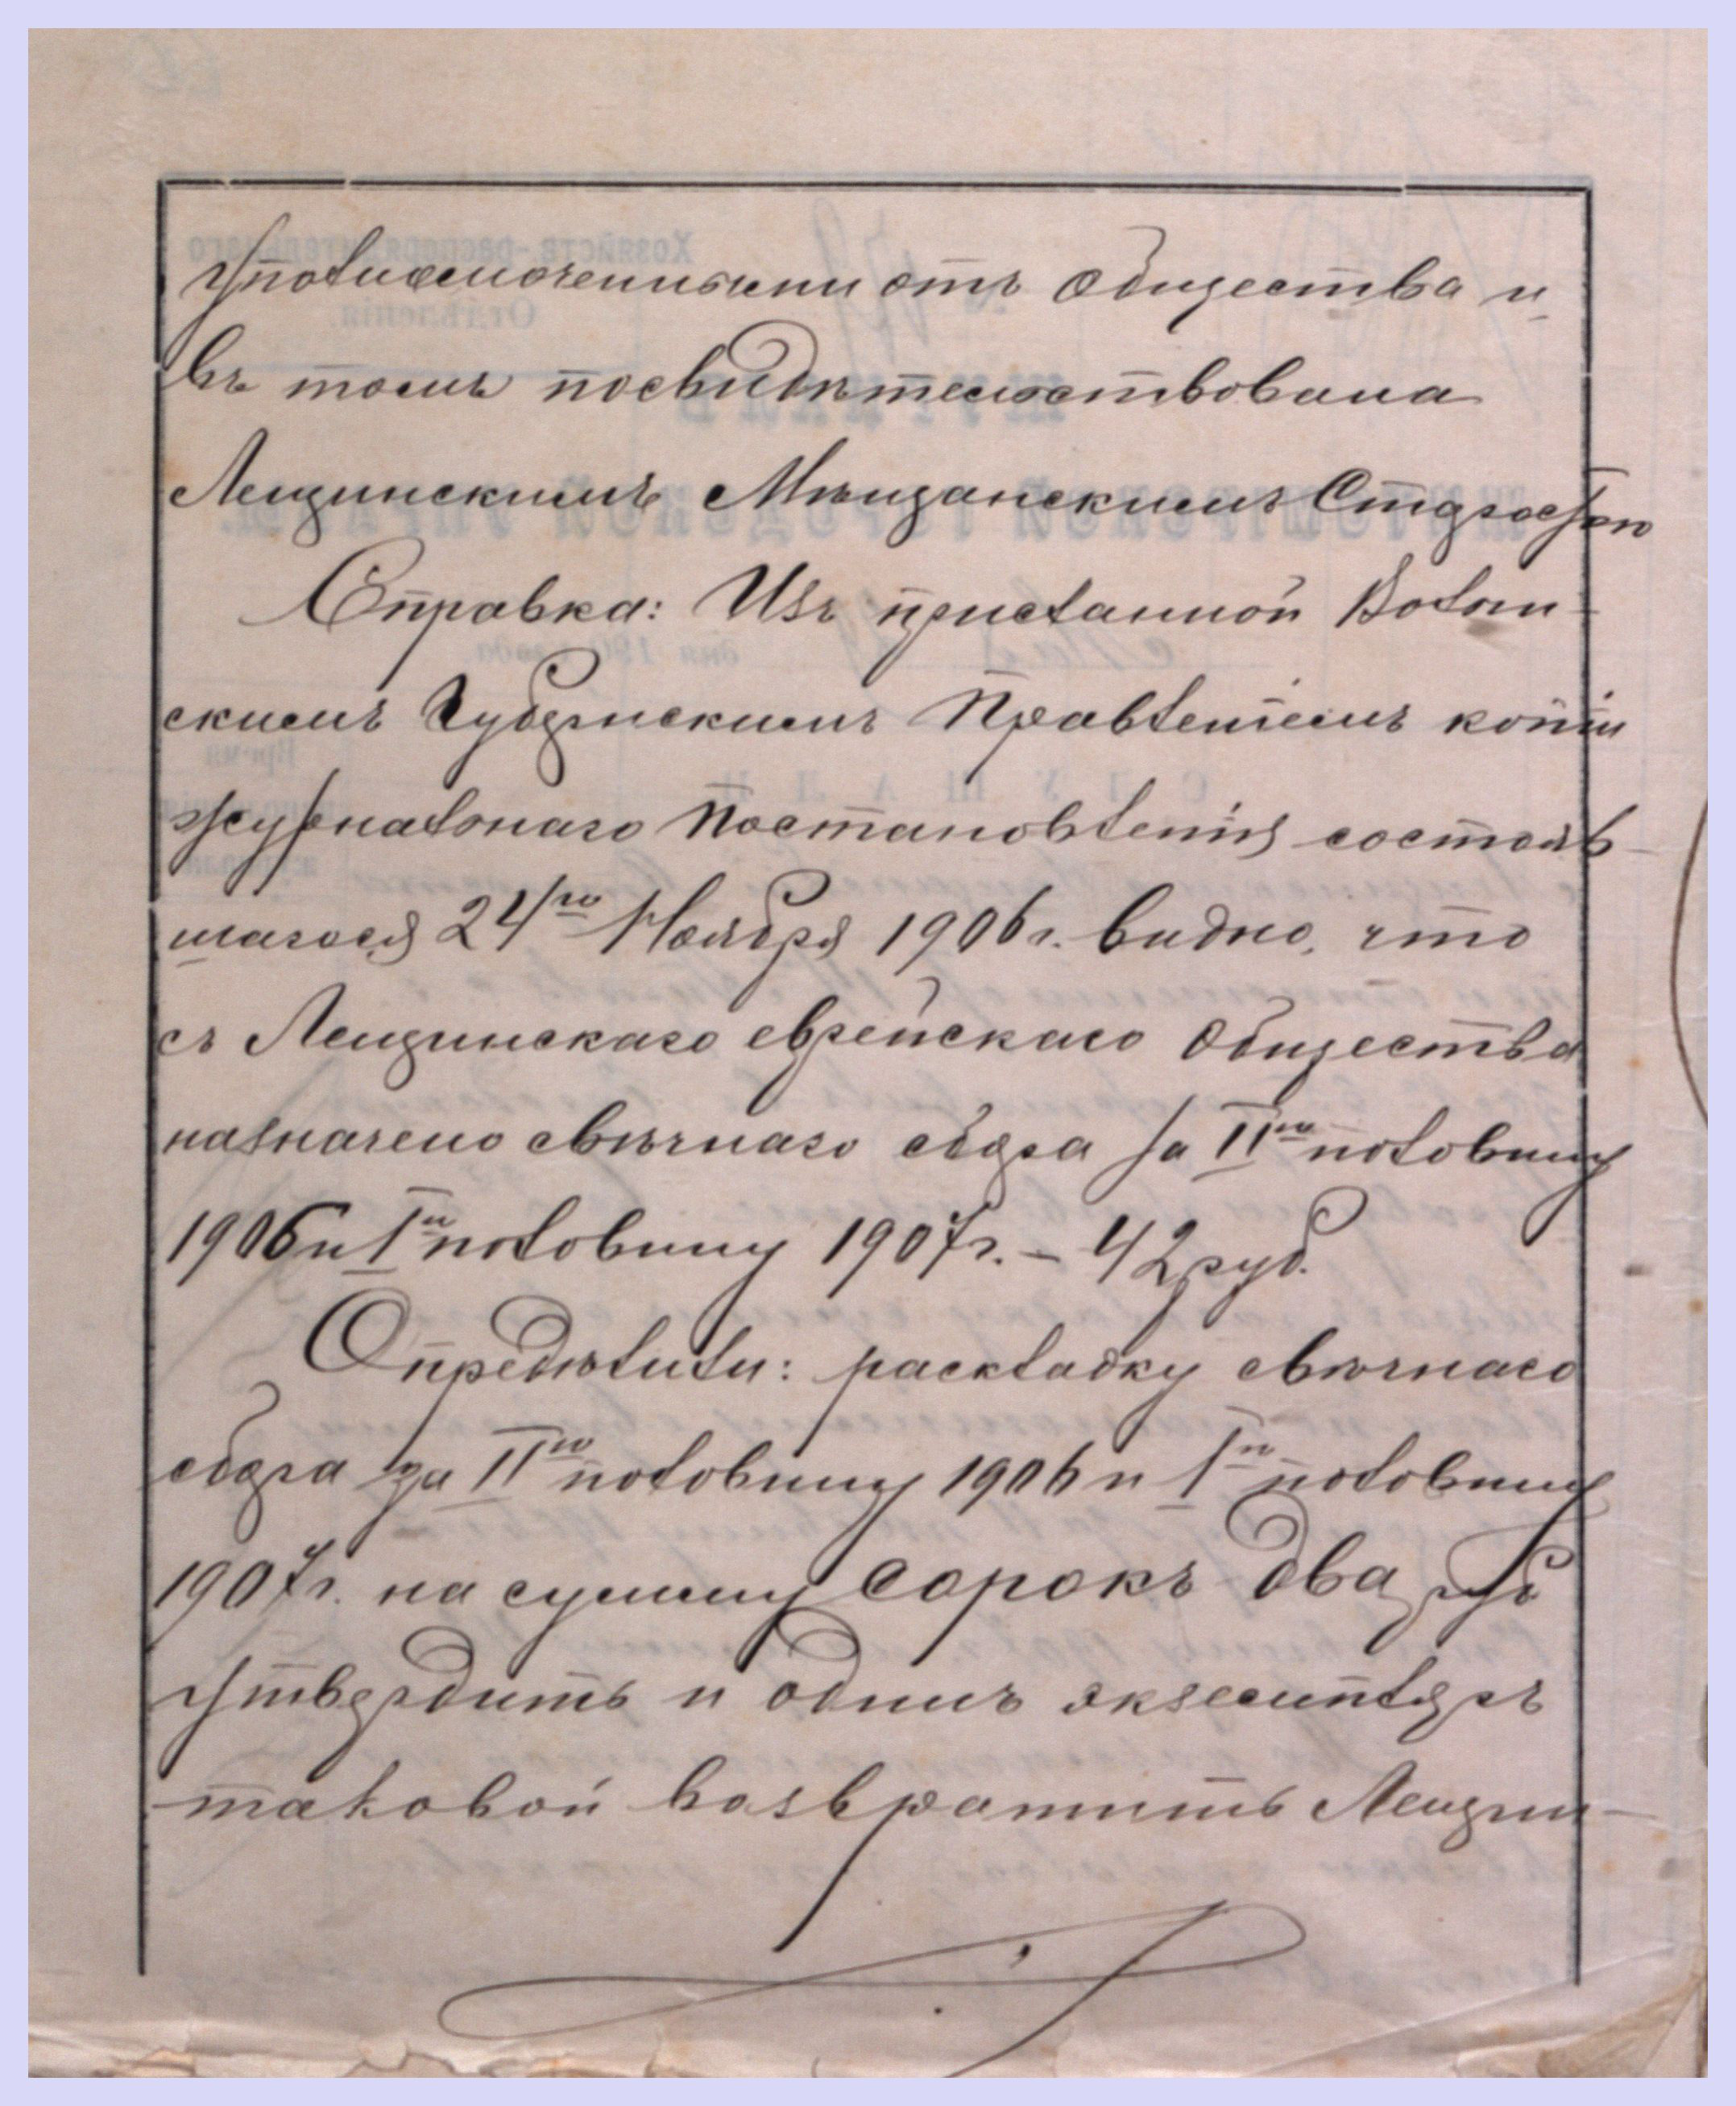 уполномоченными отъ Общества и
въ томъ посвидѣтельствована
Лещинскимъ Мѣщанскимъ Старостою
Справка: Изъ присланной Волын-
скимъ Губернскимъ Правленіемъ копіи
журнальнаго постановленія состояв-
шагося 24го Ноября 1906 г. видно, что
съ Лещинскаго еврейскаго Общества
назначено свѣчнаго сбора за IIю половину
1906 и Iю половину 1907 г. – 42 руб.
Опредѣлили: раскладку свѣчнаго
сбора за IIю половину 1906 и Iю половину
1907 г. на сумму сорокъ два руб
утвердить и одинъ экземпляръ
таковой возвратить Лещин-